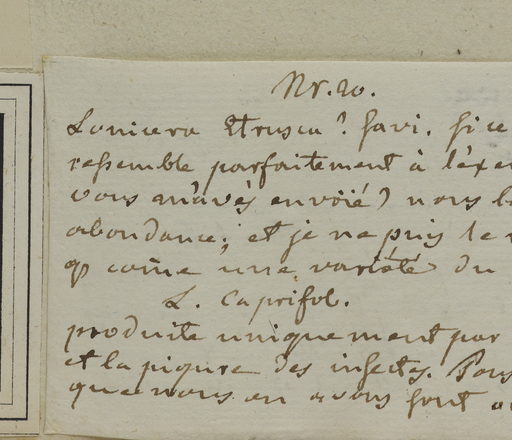 Nr. 20.
Lonicera Etrusca? Savi.
ressemble parfaitement à l'exe
vous m'avès envoïé) nous l
abondance; et je ne puis le
come une variété du
L. Caprifol.
produite uniquement par
et la piqure des insectes.
que nous en avons sont